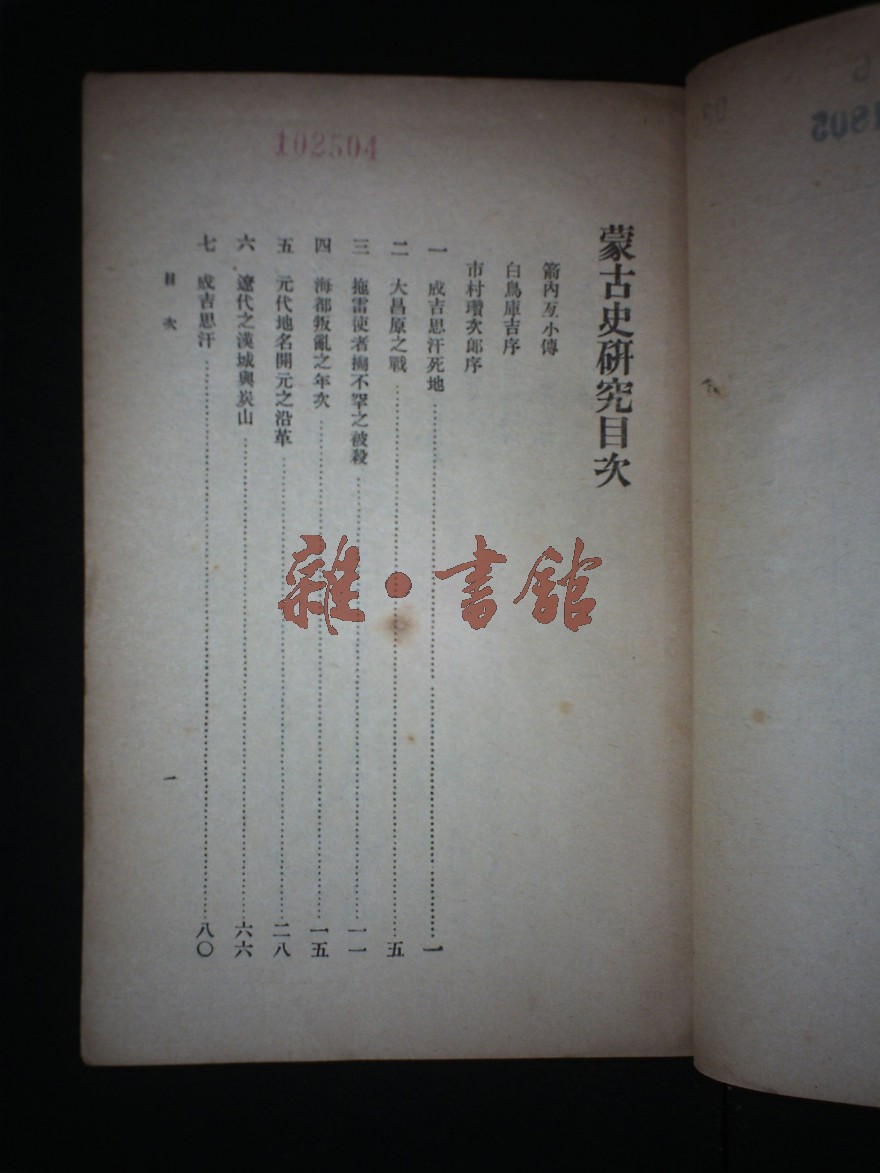 蒙古史研究目次
箭內亙小傳
白鳥庫吉序
市村瓚次郎序
一 成吉思汗死地 一
二 大昌原之戰 五
三 拖雷使者搠不罕之被殺 一一
四 海都叛亂之年次 一五
五 元代地名開元之沿革 二八
六 遼代之漢城與炭山 六六
七 成吉思汗 八〇
目次 一
102504
雜·書館
1805